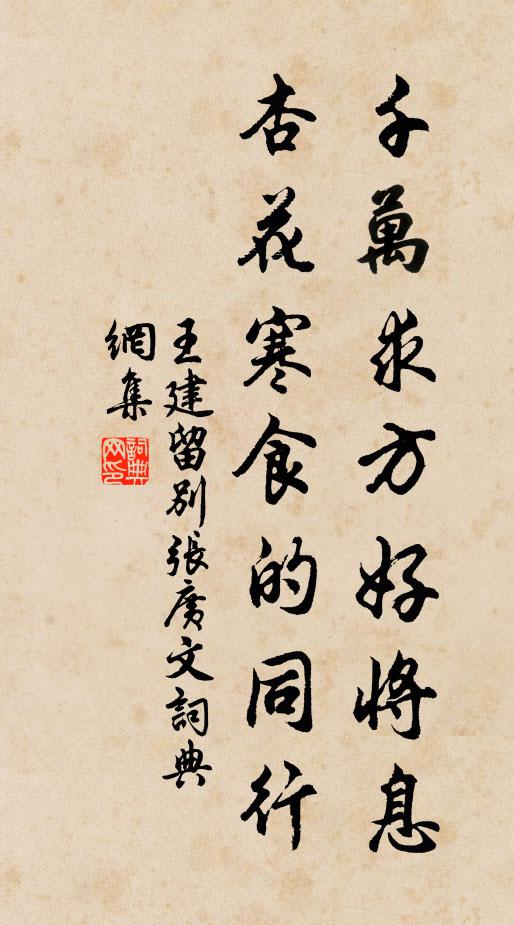 千萬求方好將息
杏花寒食的同行
王建留別張廣文詞典
網集
詞典
网印